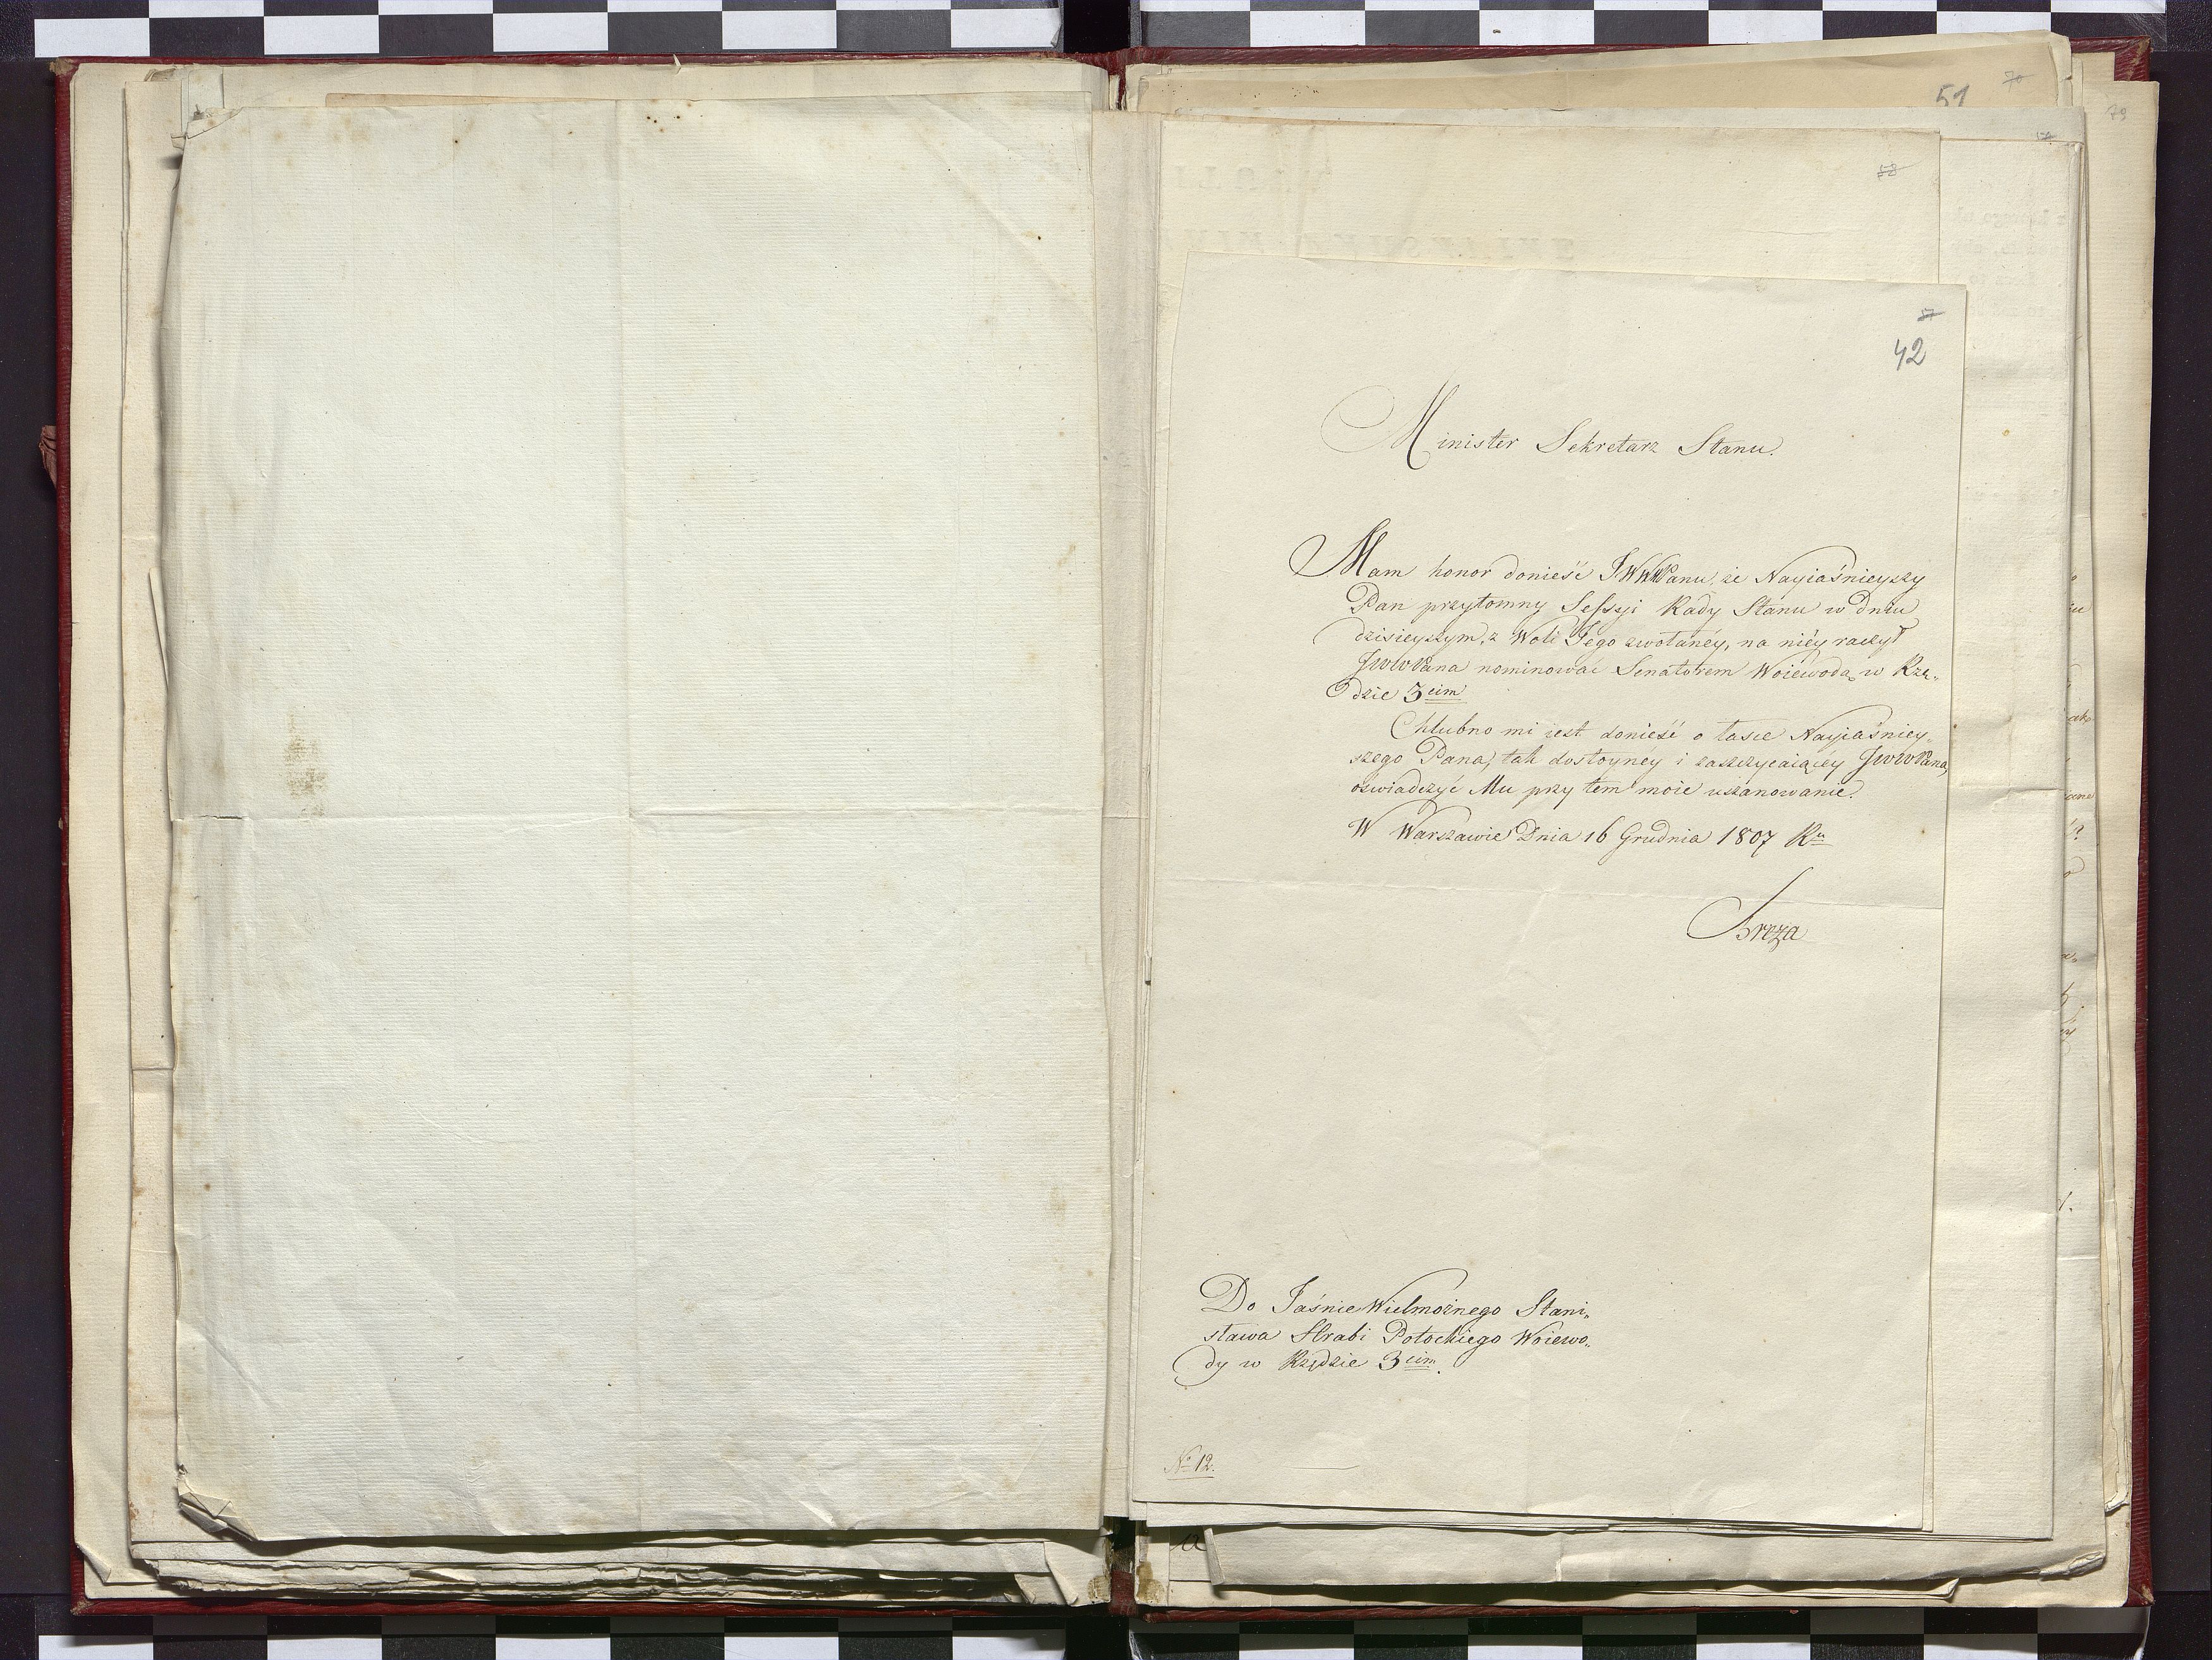 51
70
79
58
57
42
Minister Sekretarz Stanu.
Mam honor donieść JWWPanu, że Nayiaśnieyszy
Pan przytomny Sessyi Rady Stanu w dniu
dzisieyszym, z Woli Jego zwołanéy, na niéy raczył
JWWPana nominować Senatorem Woiewodą, w Rzę„
dzie 3cim
Chlubno mi iest donieść o łasce Nayiaśniey„
szego Pana, tak dostoyney i zaszczycaiącéy JWWPana,
oświadczyć Mu przy tem moie uszanowanie.
W Warszawie Dnia 16 Grudnia 1807 Ru
Breza
Do Jaśnie Wielmożnego Stani„
sława Hrabi Potockiego Woiewo„
dy w Rzędzie 3cim.
No 12.